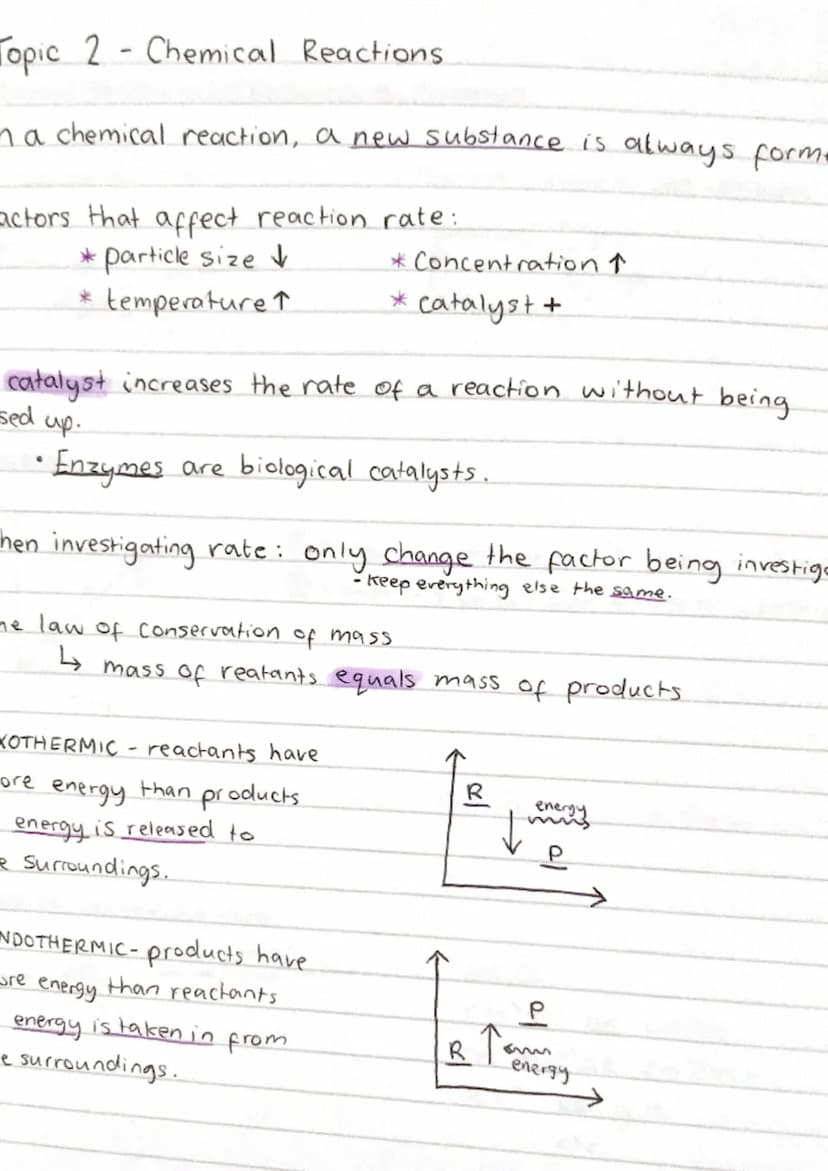 Topic 2 - Chemical Reactions
n a chemical reaction, a new substance is always form
actors that affect reaction rate:
* particle size ↓ * Concentration ↑
* temperature ↑ * catalyst +
catalyst increases the rate of a reaction without being
sed up.
• Enzymes are biological catalysts.
hen investigating rate: only change the factor being investig
- Keep everything else the same.
he law of conservation of mass
↳ mass of reatants equals mass of products
XOTHERMIC - reactants have
ore energy than products
energy is released to
e surroundings.
R
energy
P
NDOTHERMIC - products have
ore energy than reactants
energy is taken in from
e surroundings.
P
R
energy